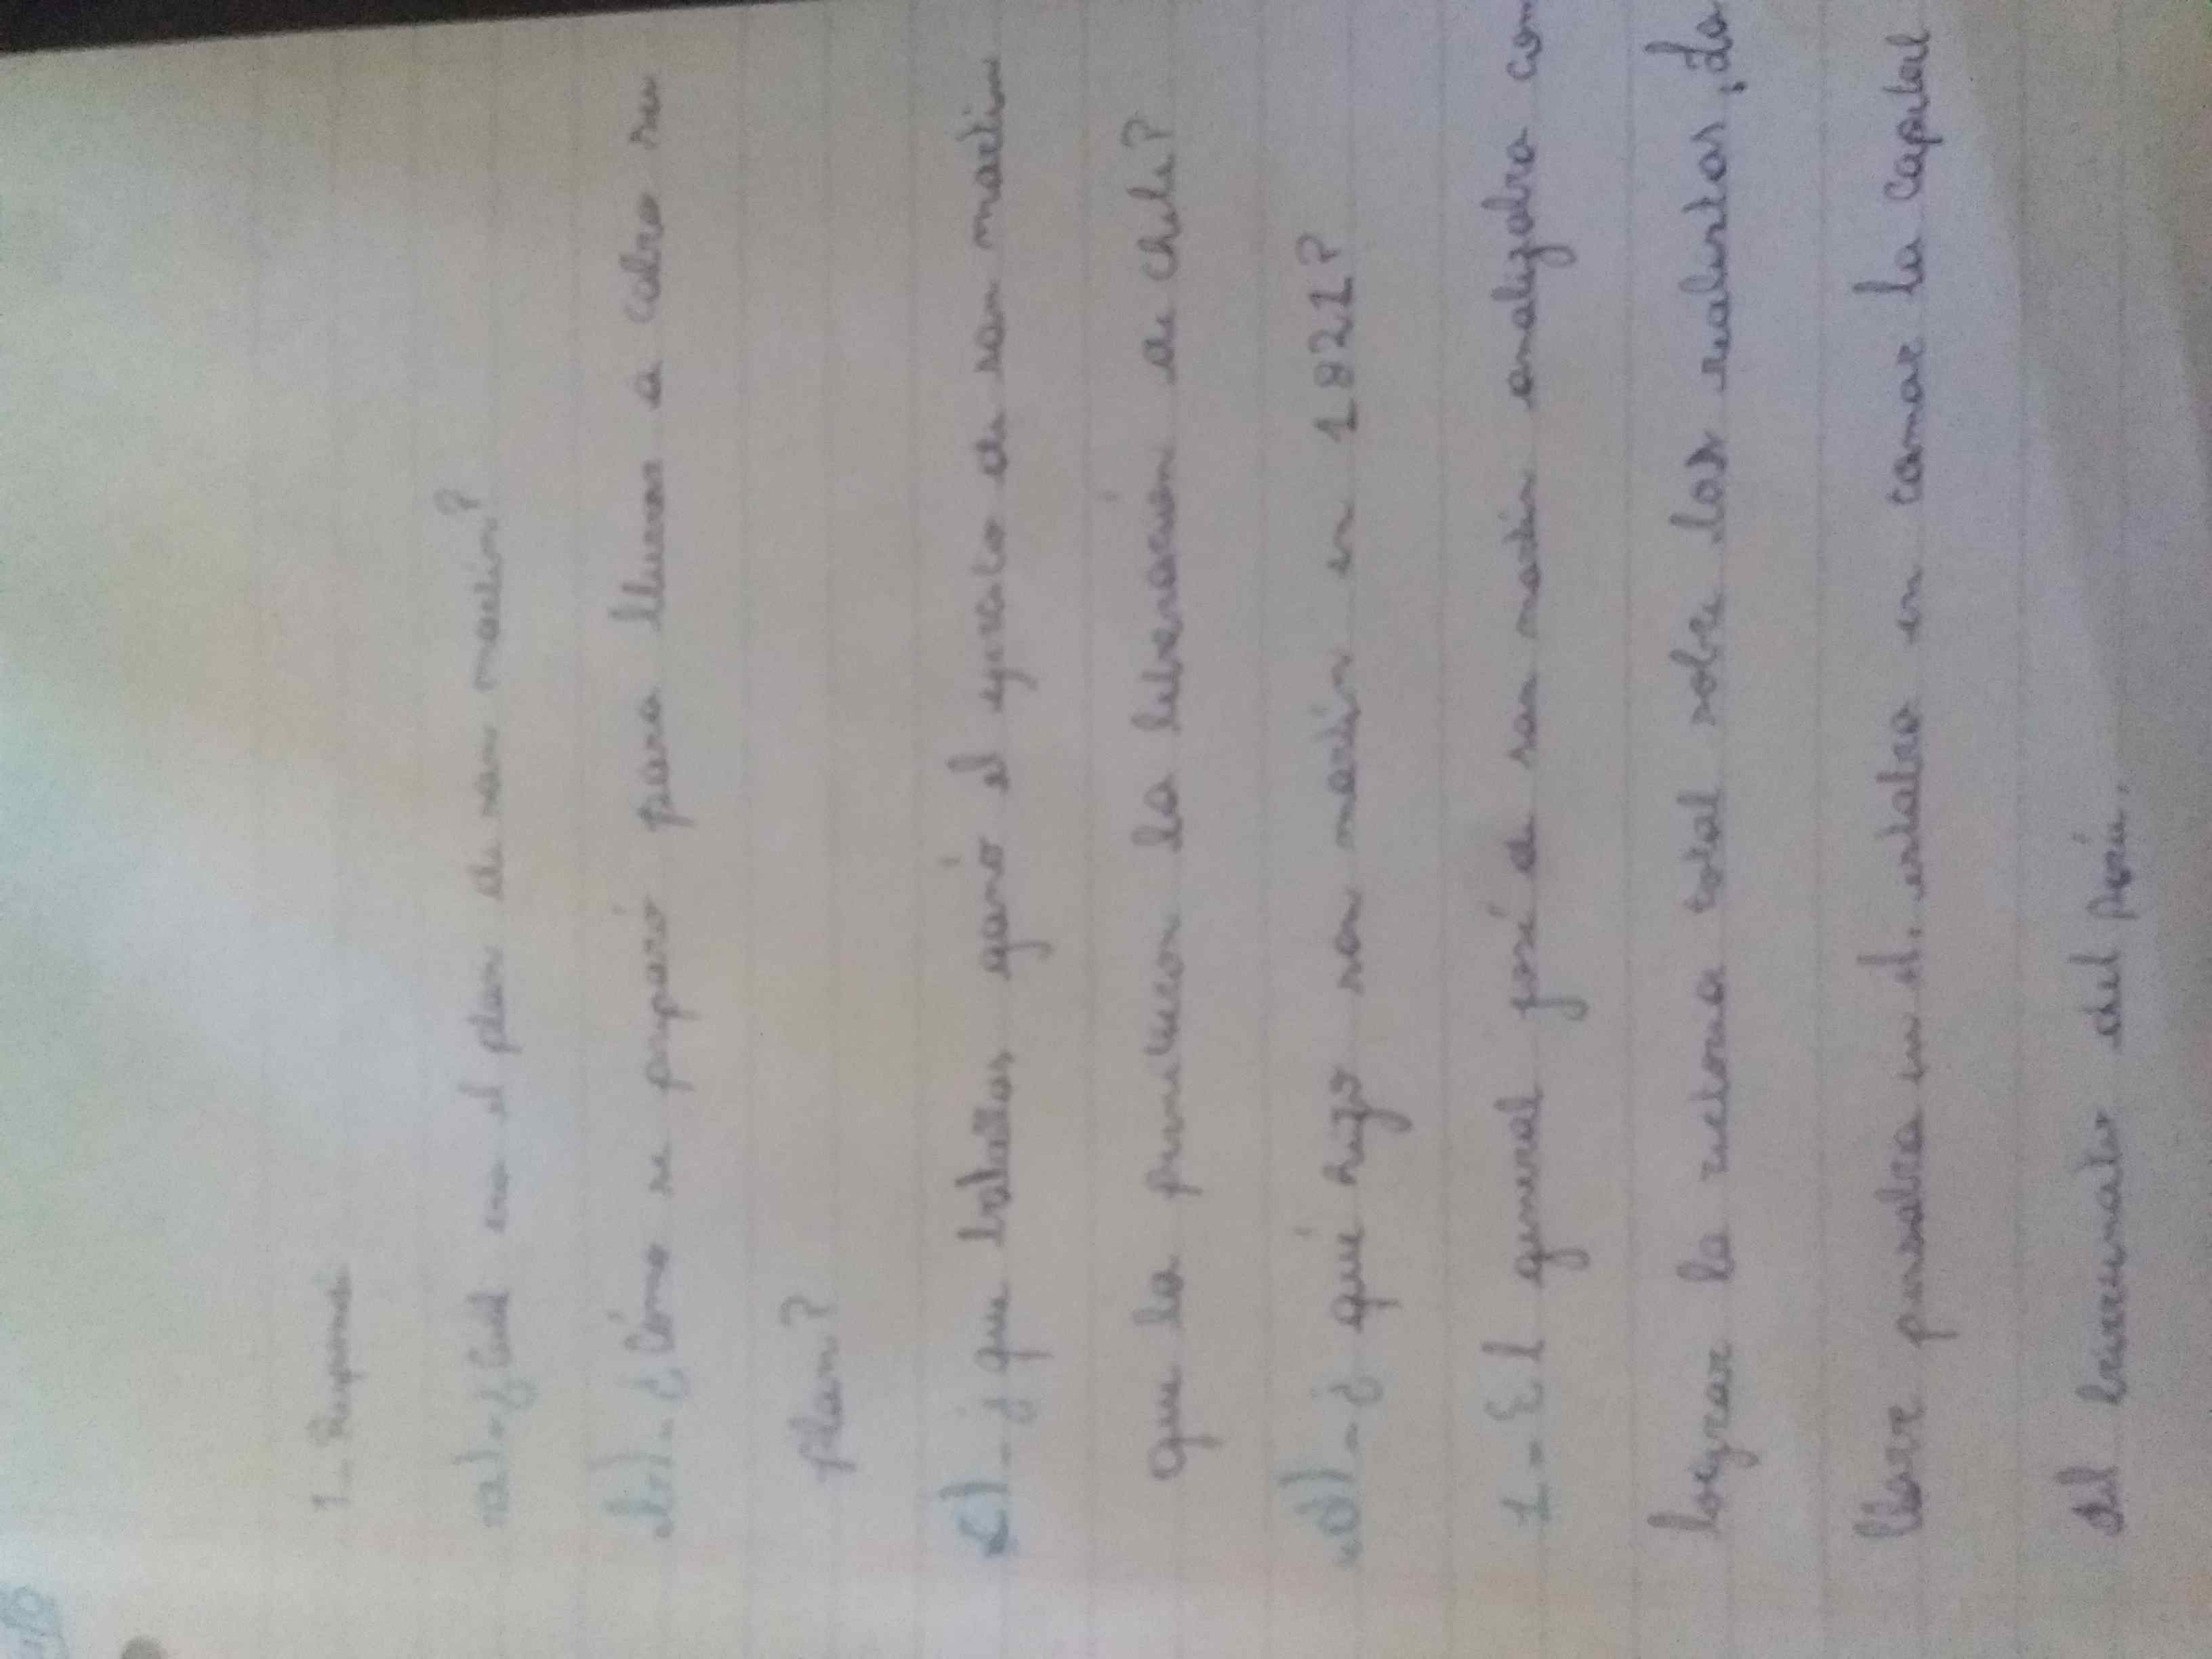 1- Responde
a)-¿Cuál era el plan de san martin?
b)-¿Cómo se preparó para llevar a cabro su
plan?
c)-¿que batallas ganó el ejercito de san martin
que le permitieron la liberación de chile?
d)-¿qué hizo san martin en 1821?
1-El general josé de san martin analizabra com
lograr la victoria total sobre los realistas, La
llave pensabra en él, estabra en tomar la capital
del birreinato del perú.